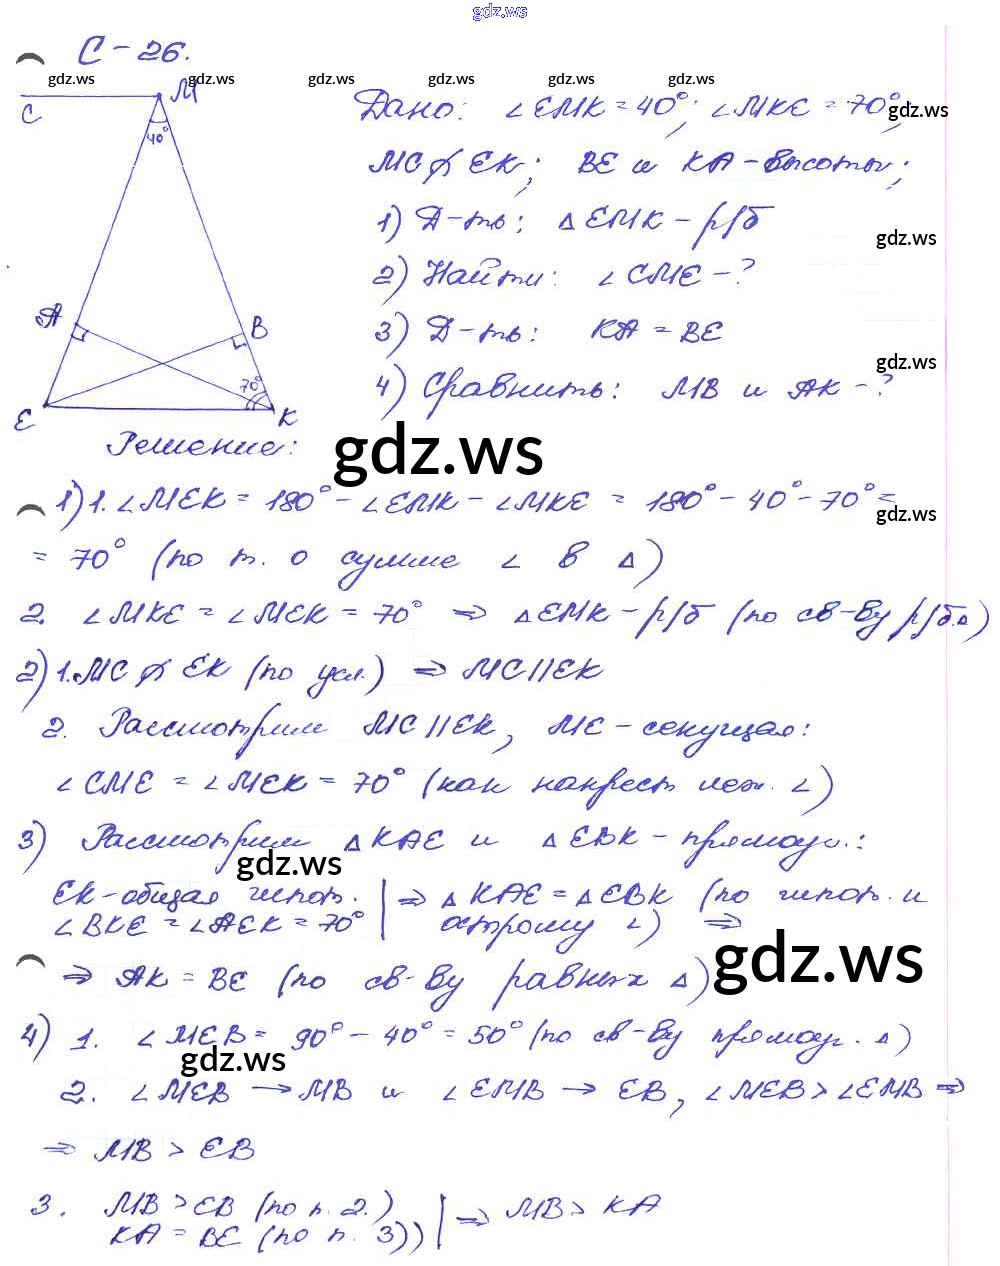 gdz.ws
С-26.
gdz.ws gdz.ws gdz.ws gdz.ws gdz.ws gdz.ws
C M 40° A B 70° E K
Дано: ∠EMK = 40°; ∠MKE = 70°; gdz.ws
MC ∦ EK; BE и KA - высоты;
1) Д-ть: △EMK - р/б
gdz.ws
2) Найти: ∠CME - ?
3) Д-ть: KA = BE
gdz.ws
4) Сравнить: MB и AK - ?
Решение:
gdz.ws
1) 1. ∠MEK = 180° - ∠EMK - ∠MKE = 180° - 40° - 70° =
gdz.ws
= 70° (по т. о сумме ∠ в △)
2. ∠MKE = ∠MEK = 70° ⇒ △EMK - р/б (по св-ву р/б △)
2) 1. MC ∦ EK (по усл.) ⇒ MC || EK
2. Рассмотрим MC || EK, ME - секущая:
∠CME = ∠MEK = 70° (как накрест леж. ∠)
3) Рассмотрим △KAE и △EBK - прямоуг.:
gdz.ws
EK - общая гипот. | ⇒ △KAE = △EBK (по гипот. и
∠BKE = ∠AEK = 70° | острому ∠) ⇒
gdz.ws
⇒ AK = BE (по св-ву равных △)
4) 1. ∠MEB = 90° - 40° = 50° (по св-ву прямоуг. △)
gdz.ws
2. ∠MEB → MB и ∠EMB → EB, ∠MEB > ∠EMB ⇒
⇒ MB > EB
3. MB > EB (по п. 2.) | ⇒ MB > KA
KA = BE (по п. 3)) |